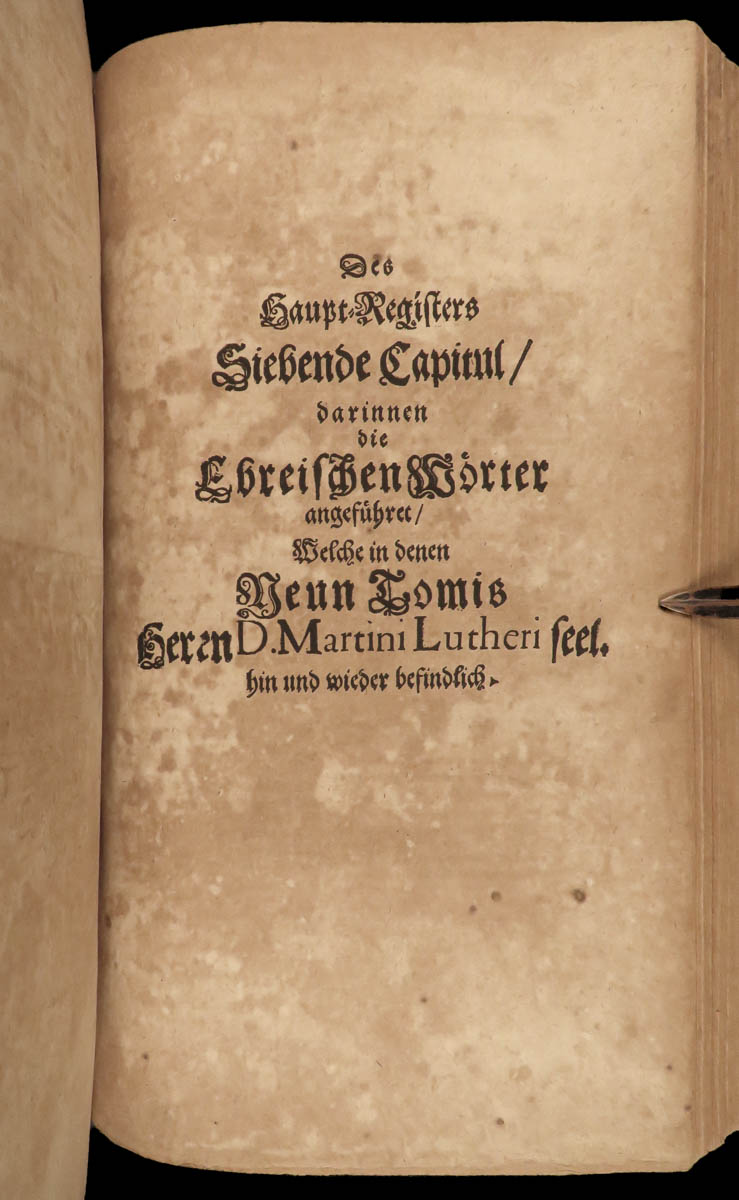 Des
Haupt-Registers
Siebende Capitul/
darinnen
die
Ebreischen Wörter
angeführet/
Welche in denen
Neun Tomis
Herrn D. Martini Lutheri seel.
hin und wieder befindlich.